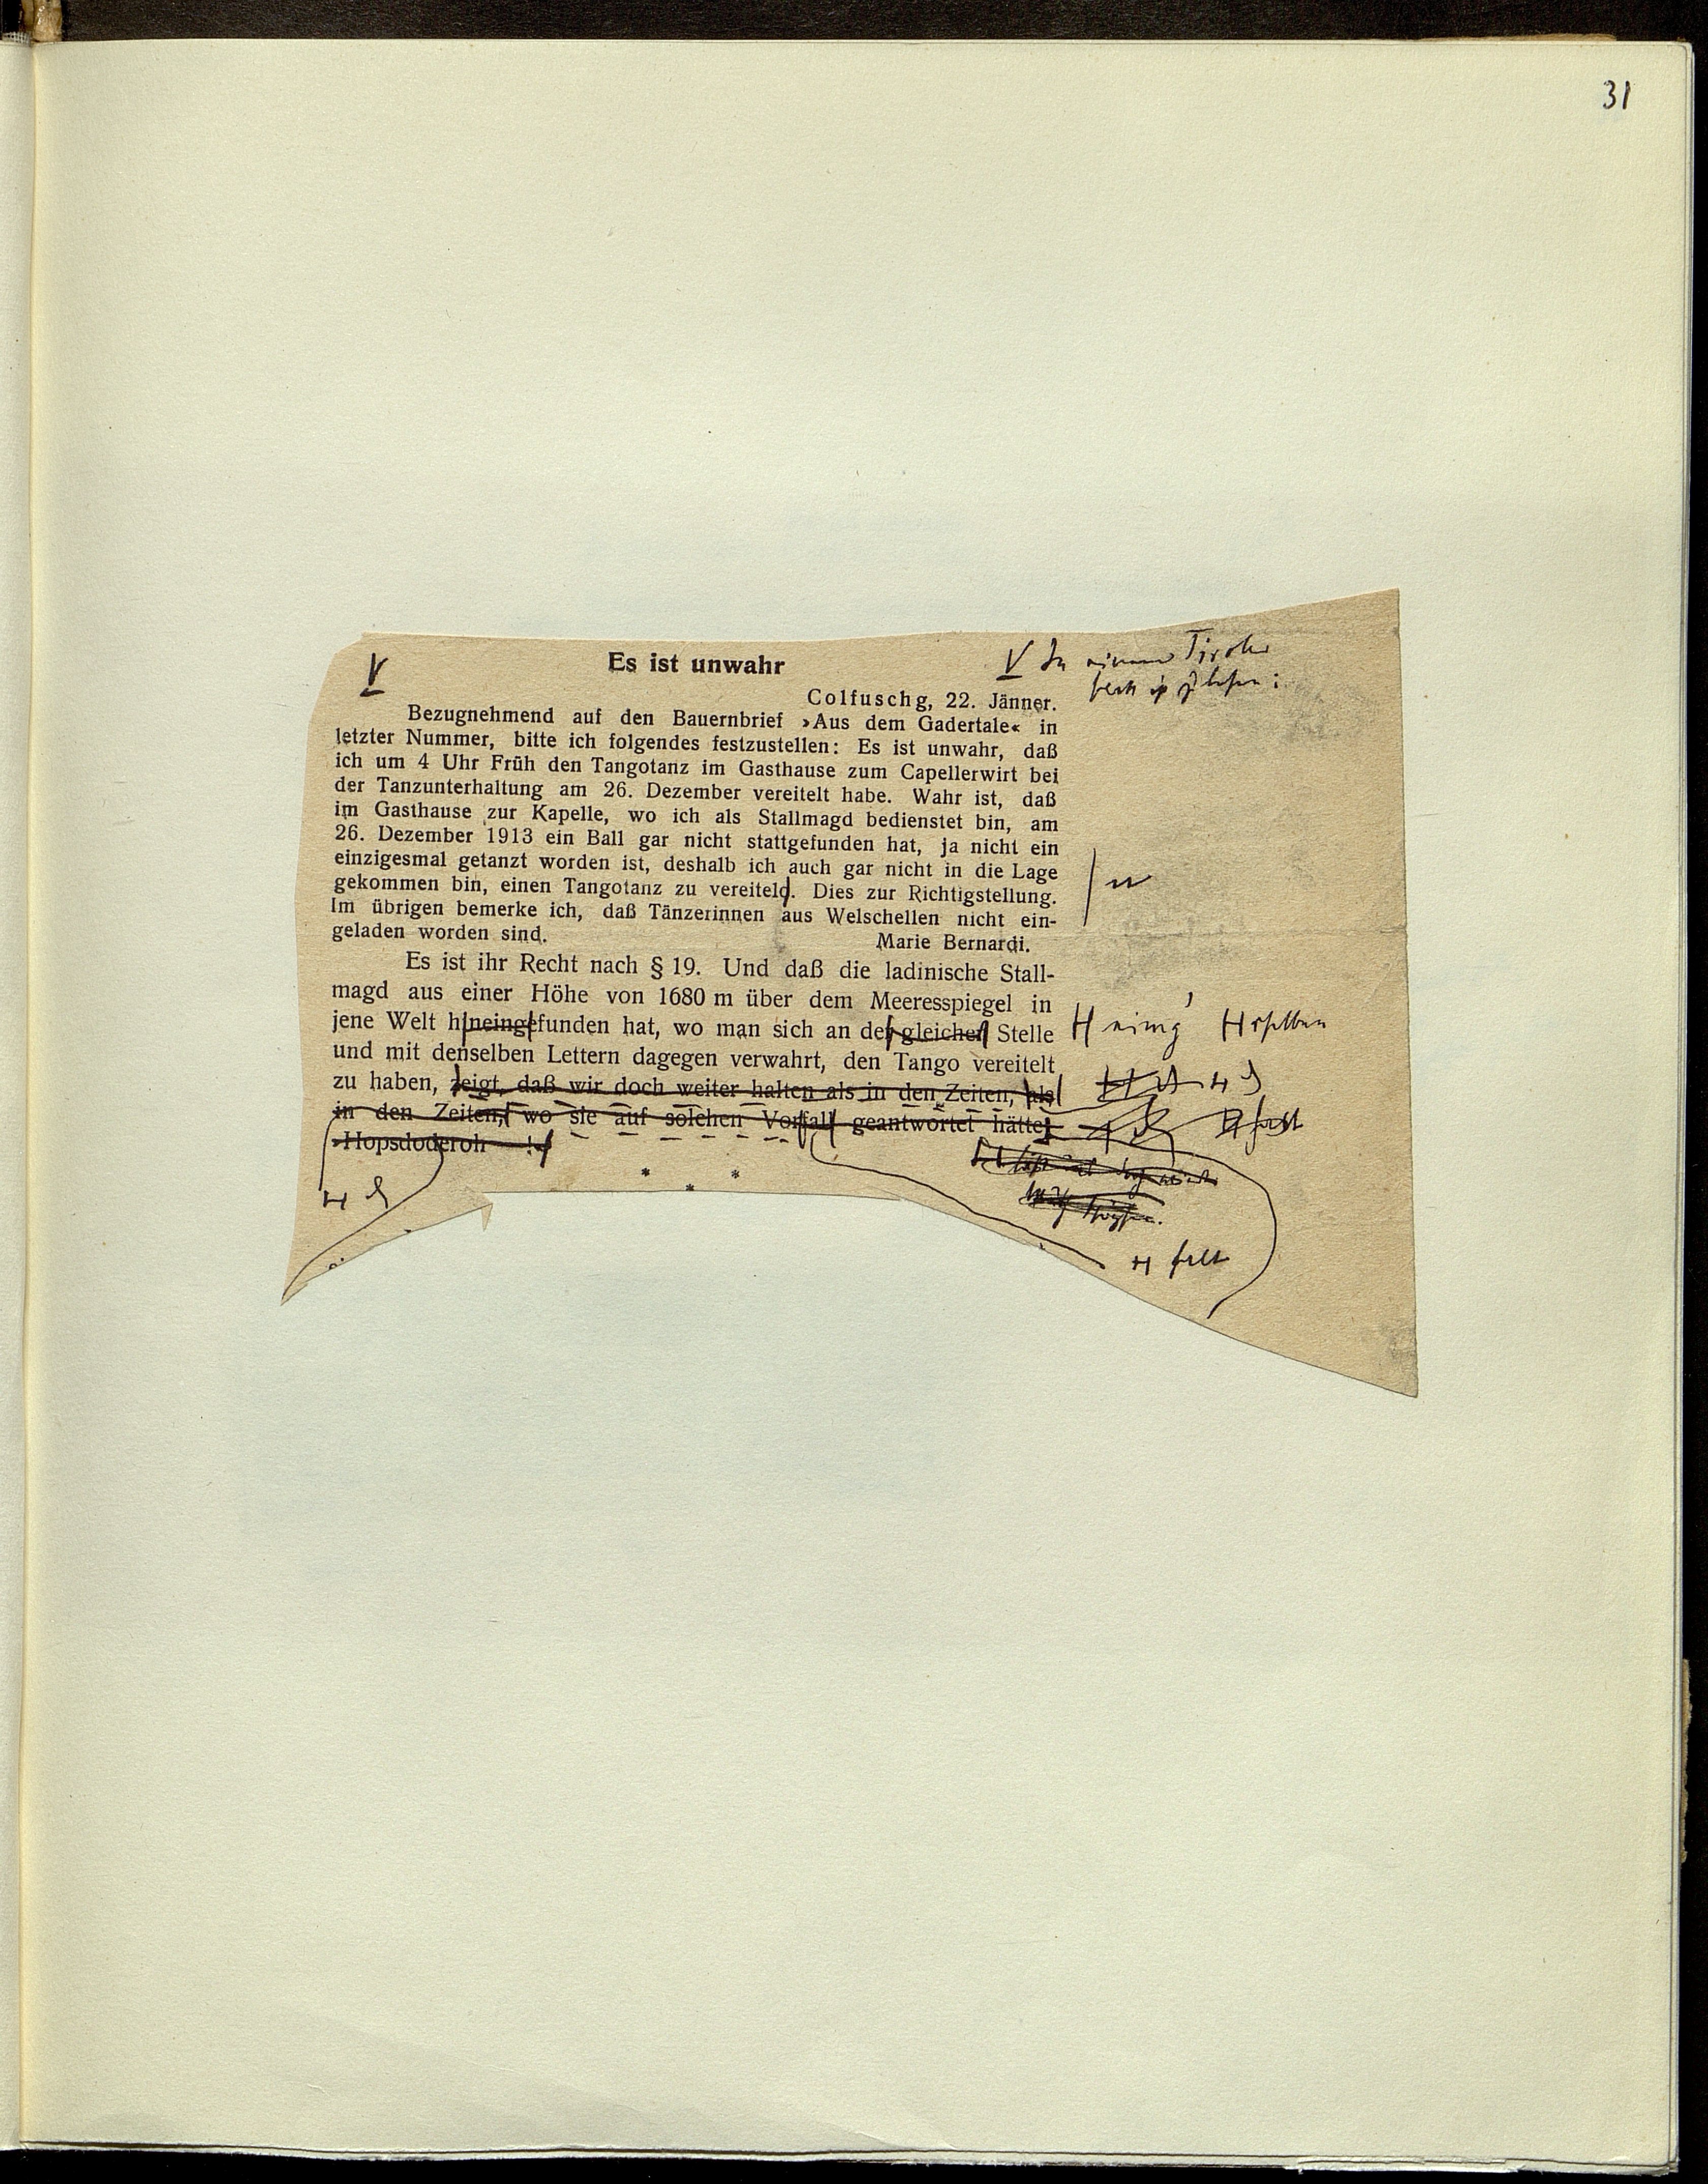 31
Es ist unwahr
In einem Tiroler
Colfuschg, 22. Jänner.
Bezugnehmend auf den Bauernbrief ›Aus dem Gadertale‹ in
letzter Nummer, bitte ich folgendes festzustellen: Es ist unwahr, daß
ich um 4 Uhr Früh den Tangotanz im Gasthause zum Capellerwirt bei
der Tanzunterhaltung am 26. Dezember vereitelt habe. Wahr ist, daß
im Gasthause zur Kapelle, wo ich als Stallmagd bedienstet bin, am
26. Dezember 1913 ein Ball gar nicht stattgefunden hat, ja nicht ein
einzigesmal getanzt worden ist, deshalb ich auch gar nicht in die Lage
gekommen bin, einen Tangotanz zu vereiteld. Dies zur Richtigstellung.
n
Im übrigen bemerke ich, daß Tänzerinnen aus Welschellen nicht ein-
geladen worden sind.
Marie Bernardi.
Es ist ihr Recht nach § 19. Und daß die ladinische Stall-
magd aus einer Höhe von 1680 m über dem Meeresspiegel in
jene Welt hineingefunden hat, wo man sich an der gleichen Stelle
eing selben
und mit denselben Lettern dagegen verwahrt, den Tango vereitelt
zu haben, zeigt, daß wir doch weiter halten als in den Zeiten, als
in den Zeiten, wo sie auf solchen Vorfall geantwortet hätte:
›Hopsdoderoh —!‹
* * *